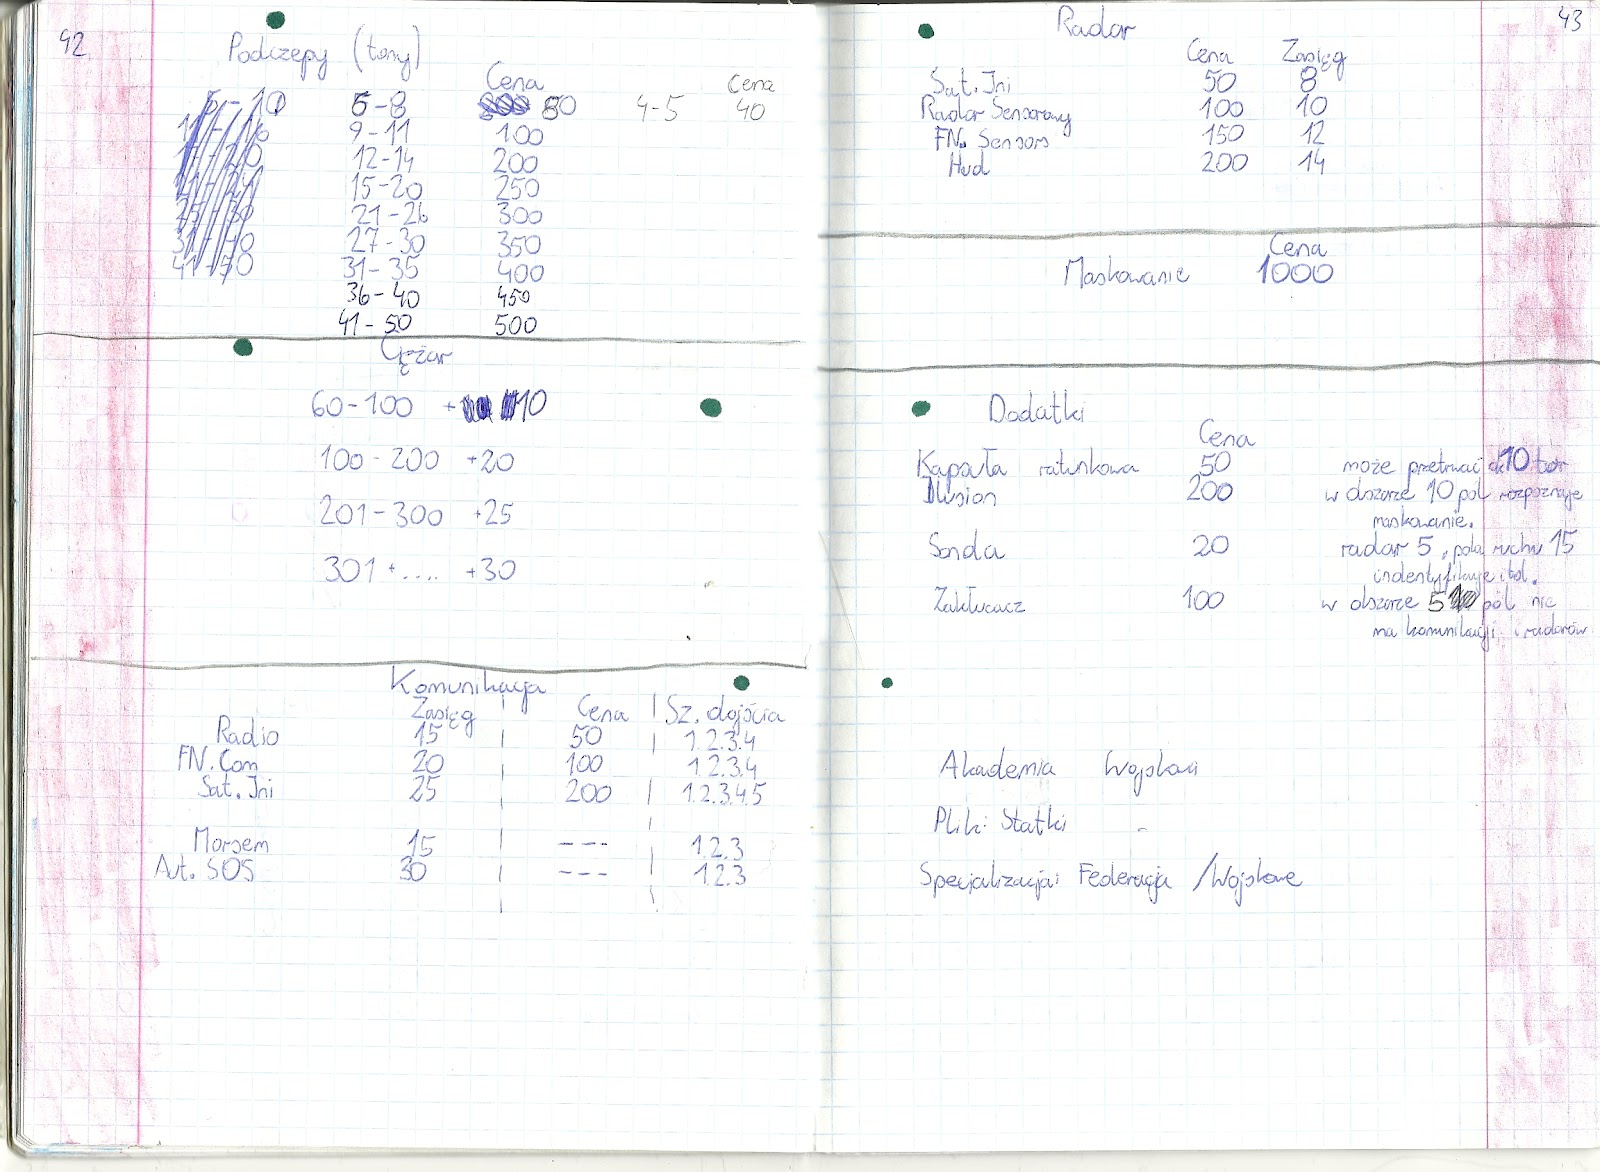 42
Podczepy (tony)
Cena Cena
6-8 50 4-5 40
9-11 100
12-14 200
15-20 250
21-26 300
27-30 350
31-35 400
36-40 450
41-50 500
Ciężar
60-100 + 10
100-200 +20
201-300 +25
301 + .... +30
Komunikacja
Zasięg Cena Sz. dojścia
Radio 15 50 1.2.3.4
FN. Com 20 100 1.2.3.4
Sat. Jni 25 200 1.2.3.4.5
Morsem 15 --- 1.2.3
Aut. SOS 30 --- 1.2.3
43
Radar
Cena Zasięg
Sat. Jni 50 8
Radar Sensorowy 100 10
FN. Sensors 150 12
Hud 200 14
Cena
Maskowanie 1000
Dodatki
Cena
Kapsuła ratunkowa 50 może przetrwać 10 tór
Ilusion 200 w obszarze 10 pól rozpoznaje
maskowanie.
Sonda 20 radar 5, pola ruchu 15
indentyfikuje itd.
Zakłucacz 100 w obszarze 5 pól nie
ma komunikacji i radarów
Akademia Wojskowa
Pliki Statki -
Specjalizacja: Federacja / Wojskowe